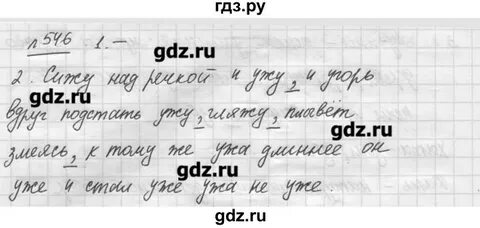 гдз.ру
п 546 1. –
gdz.ru gdz.ru
2. Сижу над речкой и ужу, и угорь
gdz.ru
вдруг подстать ужу, гляжу, плывёт
gdz.ru
змеясь, к тому же ужа длиннее он
gdz.ru
уже и стал уже ужа не уже.
gdz.ru gdz.ru